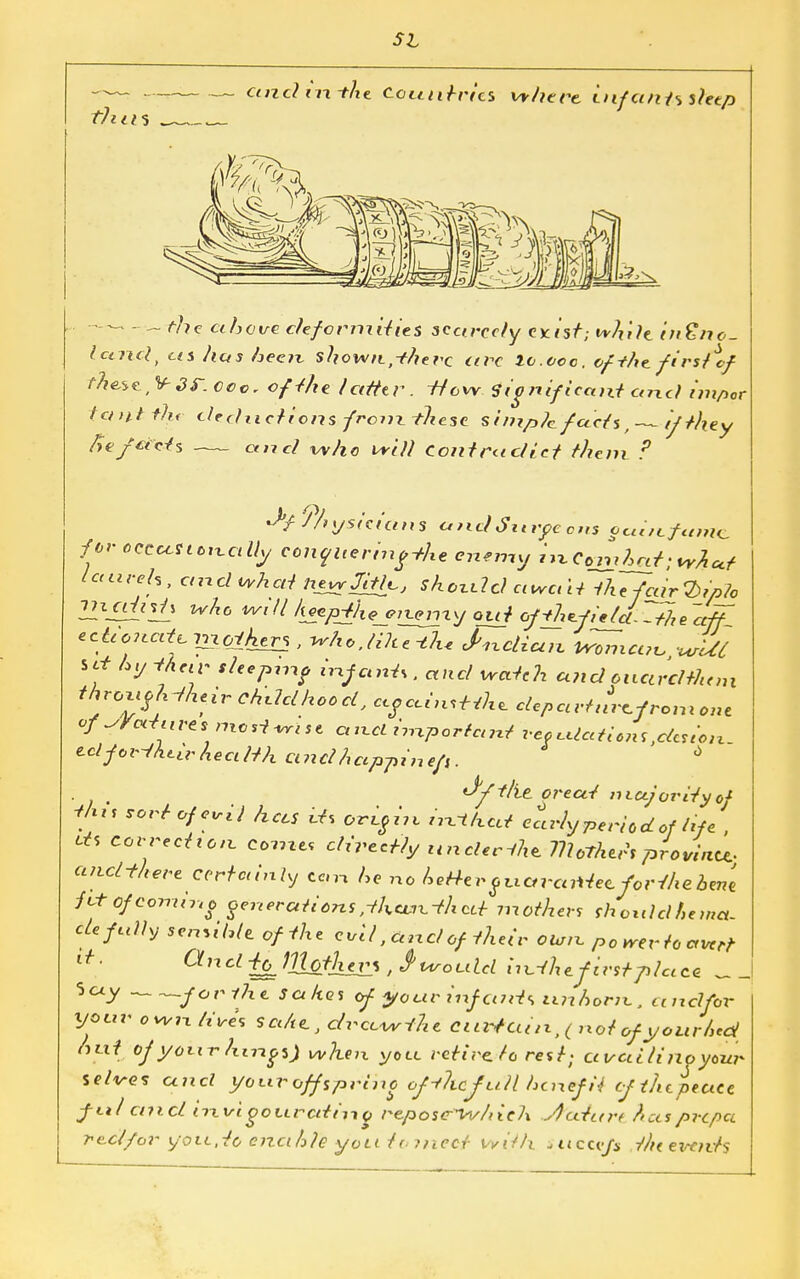 52
and in the Countries where infants sleep
thus
the above deformities scarcely exist; while in Eng-
land, as has been shown, there are 10.000. of the first of
these, & 35.000. of the latter. How Significant and impor
tant the deductions from these simple facts, — if they
be facts — and who will contradict them ?
If Physicians and Surgeons gain fame
for occasionally conquering the enemy in Combat; what
laurels, and what new Title, should await the fair Diplo
matists who will keep the enemy out of the field - the aff-
ectionate mothers, who, like the Indian Woman, will
sit by their sleeping infants, and watch and guard them
through their childhood, against the departure from one
of Nature's most wise and important regulations, design-
ed for their health and happiness.
If the great majority of
this sort of evil has its origin in that early period of life,
its correction comes directly under the Mother's province;
and there certainly can be no better guarantee for the bene
fit of coming generations, than that mothers should be ma-
de fully sensible of the evil, and of their own power to avert
it. And to Mothers, I would in the first place —
Say — for the sakes of your infants unborn, and for
your own lives sake, draw the curtain, (not of your bed
but of your lungs) when you retire to rest; availing your
selves and your offspring of the full benefit of the peace
ful and invigourating repose which Nature has prepa
red for you, to enable you to meet with success the events